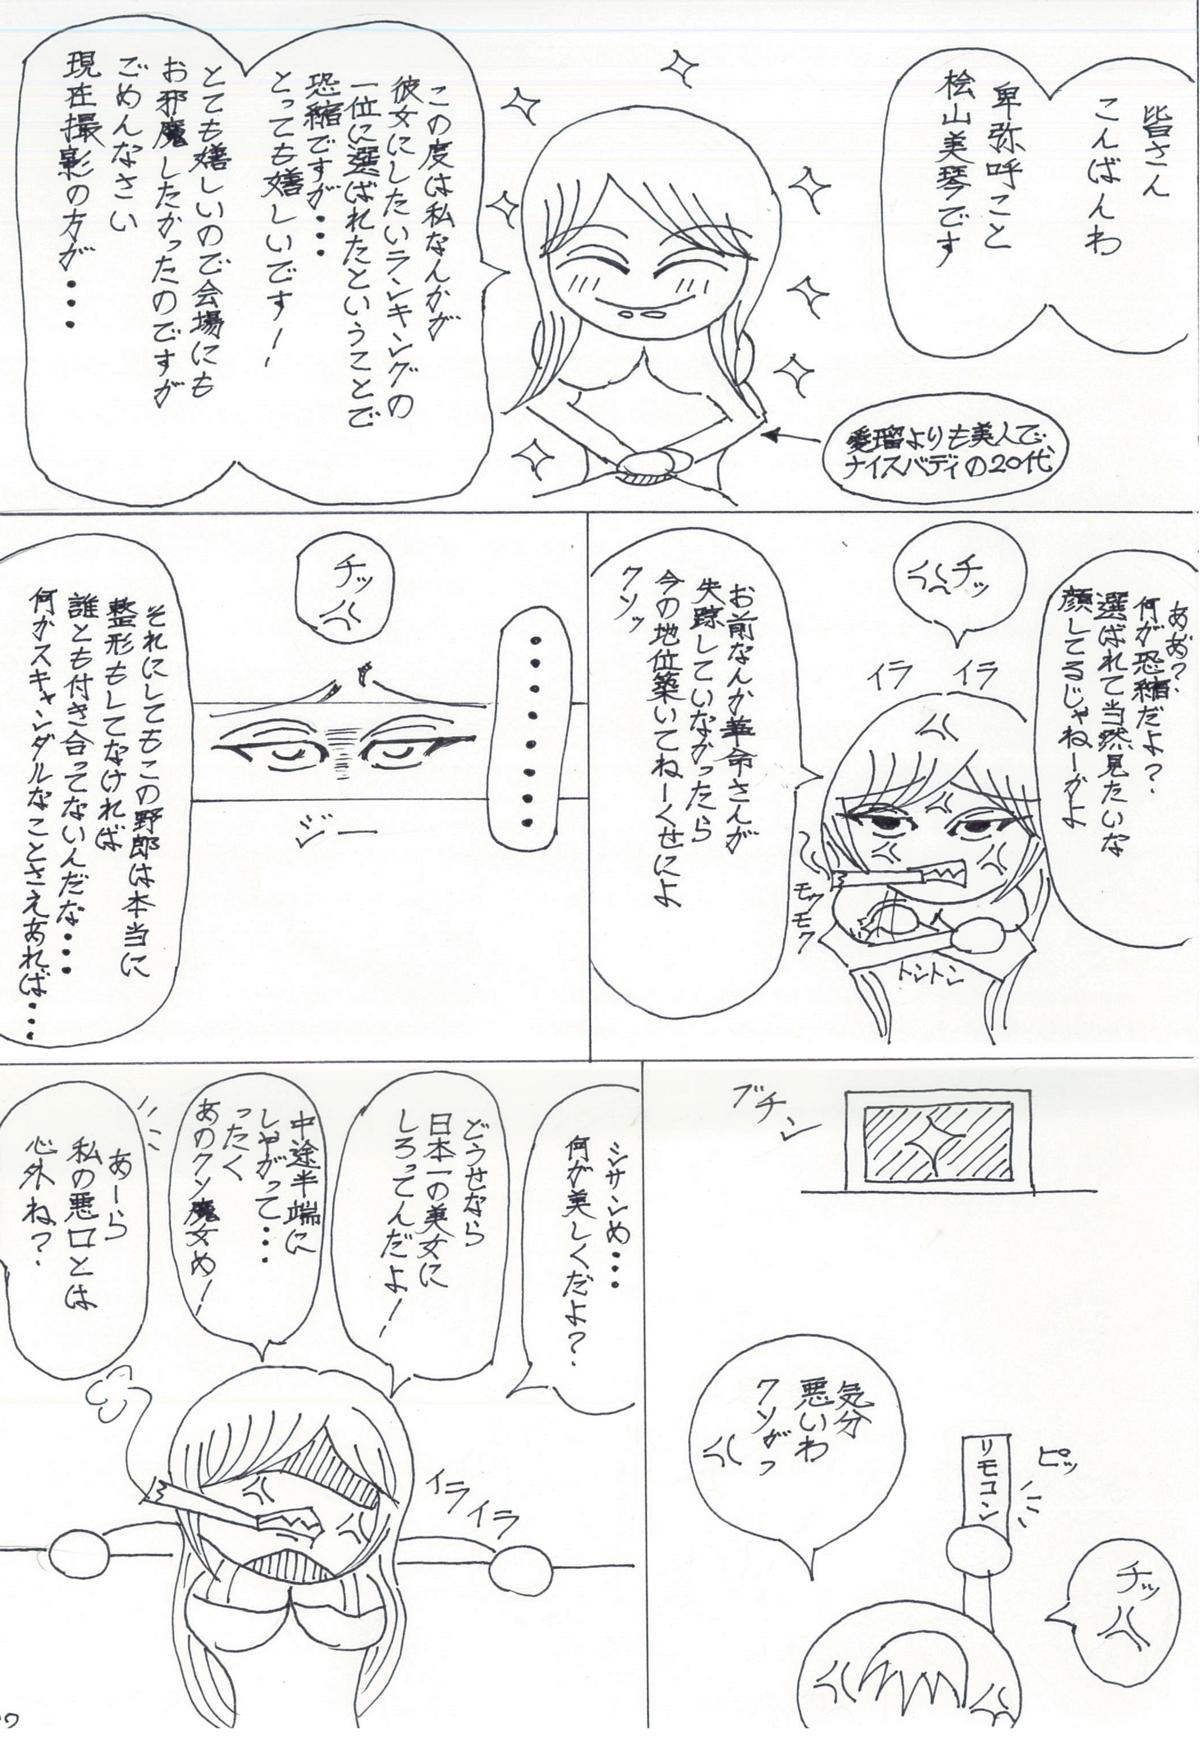 皆さん
こんばんわ
卑弥呼こと
桧山美琴です
この度は私なんかが
彼女にしたいランキングの
一位に選ばれたということで
恐縮ですが・・・
とっても嬉しいです!
とても嬉しいので会場にも
お邪魔したかったのですが
ごめんなさい
現在撮影の方が・・・
愛瑠よりも美人で、
ナイスバディの20代
ああ?
何が恐縮だよ?
選ばれて当然見たいな
顔してるじゃねーかよ
チッ
イラ
イラ
お前なんか革命さんが
失踪していなかったら
今の地位築いてねーくせによ
クソッ
モクモク
トントン
・・・・・・・・
チッ
ジー
それにしてもこの野郎は本当に
整形もしてなければ
誰とも付き合ってないんだな・・・
何かスキャンダルなことさえあれば・・・
ブチン
ピッ
リモコン
チッ
気分
悪いわ
クソがっ
シサンめ・・・
何が美しくだよ?
どうせなら
日本一の美女に
しろってんだよ!
中途半端に
しやがって・・・
ったく
あのクソ魔女め!
あーら
私の悪口とは
心外ね?
イライラ